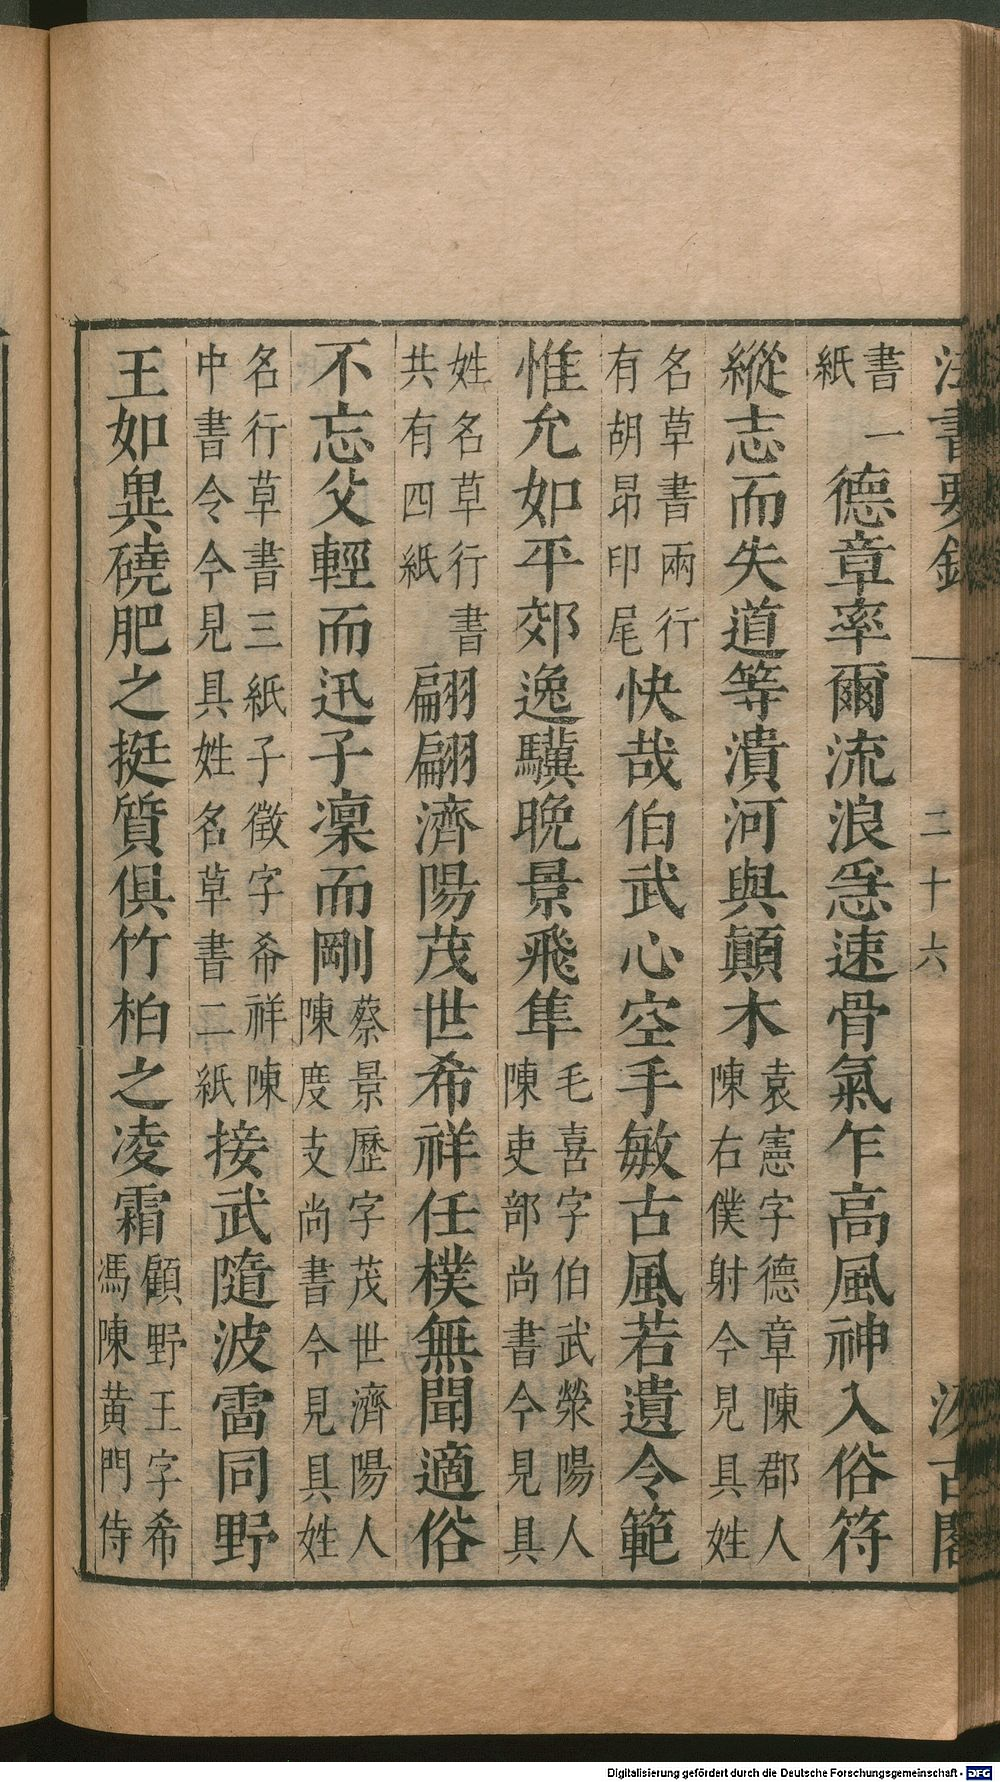 法書要錄
二十六
汲古閣
書一紙德章率爾流浪急速骨氣乍高風神入俗符
縱志而失道等潰河與顛木袁憲字德章陳郡人陳右僕射今見具姓
名草書兩行有胡昂印尾快哉伯武心空手敏古風若遺令範
惟允如平郊逸驥晚景飛隼毛喜字伯武滎陽人陳吏部尚書今見具
姓名草行書共有四紙翩翩濟陽茂世希祥任樸無聞適俗
不忘父輕而迅子凜而剛蔡景歷字茂世濟陽人陳度支尚書今見具姓
名行草書三紙子徵字希祥陳中書令今見具姓名草書二紙接武隨波雷同野
王如異磽肥之挺質俱竹柏之凌霜顧野王字希馮陳黃門侍
Digitalisierung gefördert durch die Deutsche Forschungsgemeinschaft - DFG